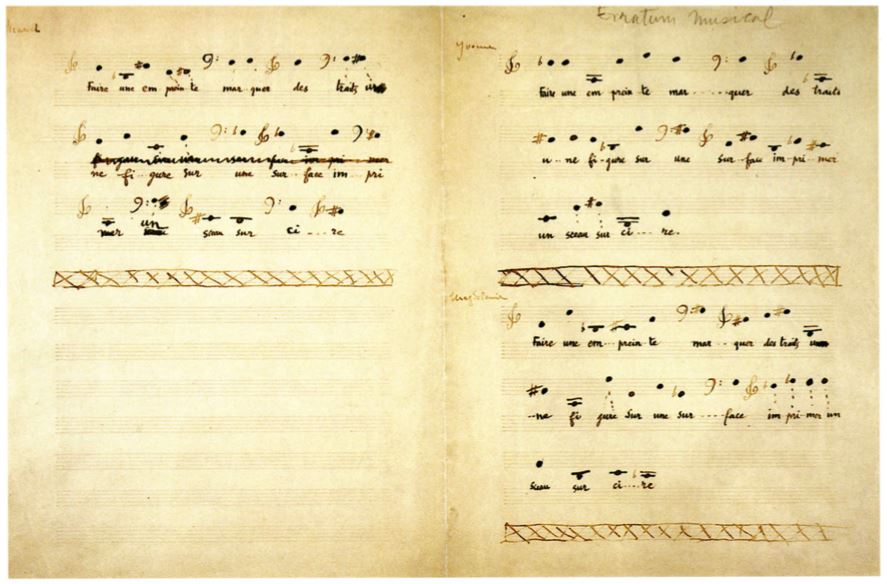 Marcel
Faire une em prein te mar quer des traits
ne fi gure sur une sur face im pri
mer un sceau sur ci .... re
Erratum Musical
Yvonne
Faire une em prein te mar ..... quer des traits
u .. ne fi - gure sur une sur - face im - pri - mer
un sceau sur ci .... re.
Magdeleine
Faire une em .. prein te mar ... quer des traits
..ne fi gure sur une sur .... face im pri - mer un
sceau sur ci .... re